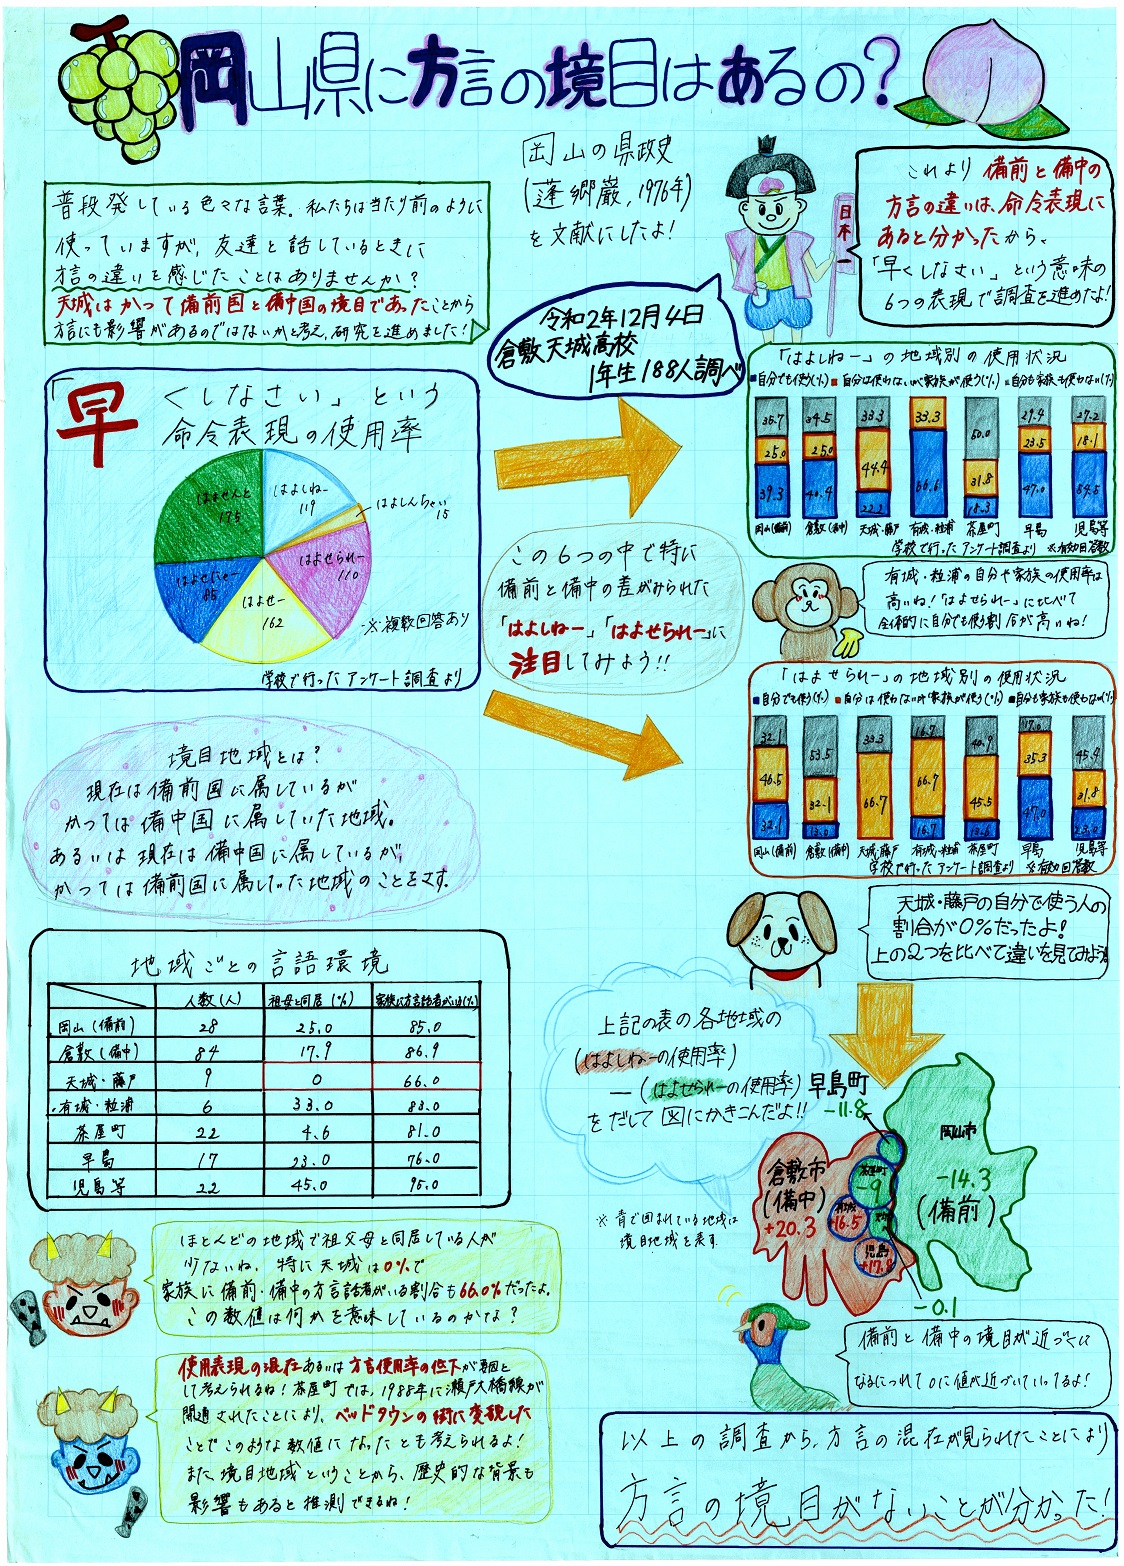 岡山県に方言の境目はあるの?
普段発している色々な言葉。私たちは当たり前のように
使っていますが、友達と話しているときに
方言の違いを感じたことはありませんか?
天城はかつて備前国と備中国の境目であったことから
方言にも影響があるのではないかと考え、研究を進めました!
岡山の県政史
(蓬郷巌,1976年)
を文献にしたよ!
日本一
これより備前と備中の
方言の違いは、命令表現に
あると分かったから、
「早くしなさい」という意味の
6つの表現で調査を進めたよ!
令和2年12月4日
倉敷天城高校
1年生188人調べ
「早くしなさい」という
命令表現の使用率
はよしねー
119
はよしんちゃい
15
はよせられー
110
はよせー
162
はよせにゃー
85
はよせんと
175
※複数回答あり
学校で行ったアンケート調査より
この6つの中で特に
備前と備中の差がみられた
「はよしねー」「はよせられー」に
注目してみよう!!
「はよしねー」の地域別の使用状況
■自分でも使う(%) ■自分は使わないが家族が使う(%) ■自分も家族も使わない(%)
35.7 34.5 33.3 33.3 50.0 29.4 27.2
25.0 25.0 44.4 31.8 23.5 18.1
39.3 40.4 22.2 66.6 18.3 47.0 54.5
岡山(備前) 倉敷(備中) 天城・藤戸 有城・粒浦 茶屋町 早島 児島等
学校で行ったアンケート調査より ※有効回答数
有城・粒浦の自分や家族の使用率は
高いね!「はよせられー」に比べて
全体的に自分でも使う割合が高いね!
「はよせられー」の地域別の使用状況
■自分でも使う(%) ■自分は使わないが家族が使う(%) ■自分も家族も使わない(%)
32.1 53.5 33.3 16.7 40.9 17.0 45.4
46.5 32.1 66.7 66.7 45.5 35.3 31.8
32.1 13.6 16.7 13.6 47.0 23.0
岡山(備前) 倉敷(備中) 天城・藤戸 有城・粒浦 茶屋町 早島 児島等
学校で行ったアンケート調査より ※有効回答数
天城・藤戸の自分で使う人の
割合が0%だったよ!
上の2つを比べて違いを見てみよう!
境目地域とは?
現在は備前国に属しているが
かつては備中国に属していた地域。
あるいは現在は備中国に属しているが、
かつては備前国に属していた地域のことをさす。
地域ごとの言語環境
人数(人) 祖母と同居(%) 家族に方言話者がいる(%)
岡山(備前) 28 25.0 85.0
倉敷(備中) 84 17.9 86.9
天城・藤戸 9 0 66.0
有城・粒浦 6 33.0 83.0
茶屋町 22 4.6 81.0
早島 17 23.0 76.0
児島等 22 45.0 95.0
上記の表の各地域の
(はよしねーの使用率)
―(はよせられーの使用率)
をだして図にかきこんだよ!!
早島町
-11.8
岡山市
-14.3
(備前)
倉敷市
(備中)
+20.3
茶屋町
-9
有城
+16.5
天城
児島
+17.8
-0.1
※青で囲まれている地域は
境目地域を表す
ほとんどの地域で祖父母と同居している人が
少ないね。特に天城は0%で
家族に備前・備中の方言話者がいる割合も66.0%だったよ。
この数値は何かを意味しているのかな?
使用表現の混在あるいは方言使用率の低下が要因と
して考えられるね!茶屋町では、1988年に瀬戸大橋線が
開通されたことにより、ベッドタウンの街に変貌した
ことでこのような数値になったとも考えられるよ!
また境目地域ということから、歴史的な背景も
影響もあると推測できるね!
備前と備中の境目が近づくに
なるにつれて0に値が近づいていってるよ!
以上の調査から、方言の混在が見られたことにより
方言の境目がないことが分かった!